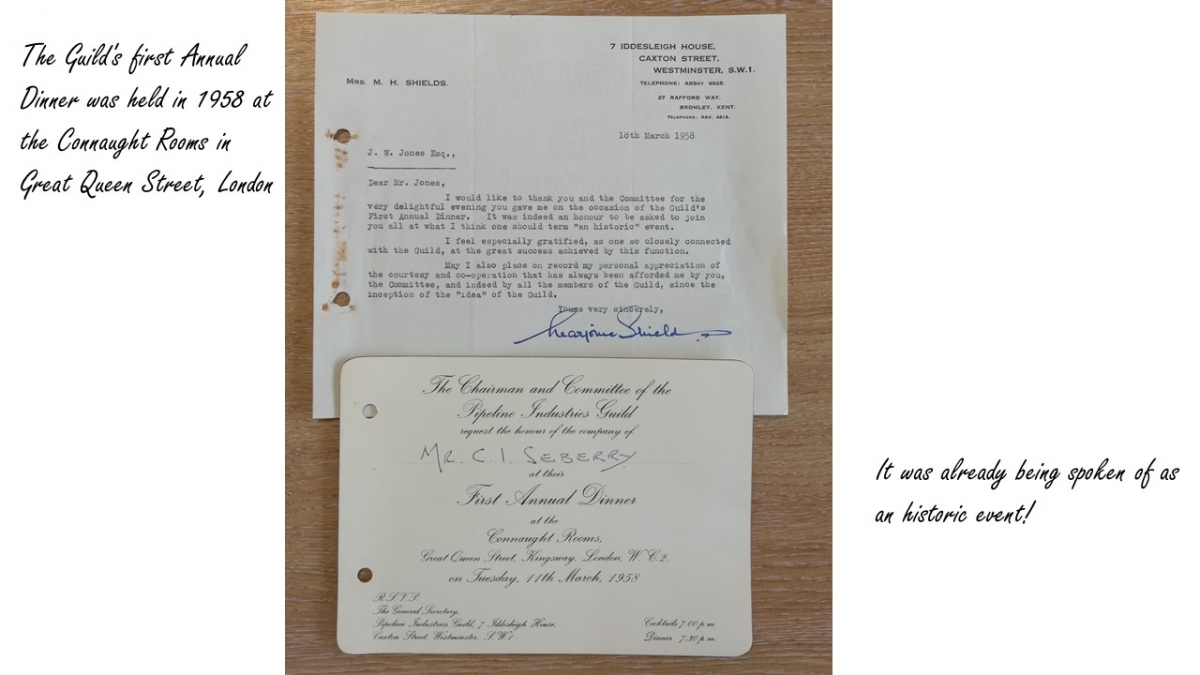 The Guild's first Annual
Dinner was held in 1958 at
the Connaught Rooms in
Great Queen Street, London
7 IDDESLEIGH HOUSE,
CAXTON STREET,
WESTMINSTER, S.W.1.
TELEPHONE: ABBEY
27 RAFFORD WAY,
BROMLEY, KENT.
TELEPHONE: RAV.
MRS. M. H. SHIELDS.
18th March 1958
J. W. Jones Esq.,
Dear Mr. Jones,
I would like to thank you and the Committee for the
very delightful evening you gave me on the occasion of the Guild's
First Annual Dinner. It was indeed an honour to be asked to join
you all at what I think one should term "an historic" event.
I feel especially gratified, as one so closely connected
with the Guild, at the great success achieved by this function.
May I also place on record my personal appreciation of
the courtesy and co-operation that has always been afforded me by you,
the Committee, and indeed by all the members of the Guild, since the
inception of the "idea" of the Guild.
Yours very sincerely,
Marjorie Shields
The Chairman and Committee of the
Pipeline Industries Guild
request the honour of the company of
MR. C. I. SEBERRY
at their
First Annual Dinner
at the
Connaught Rooms,
Great Queen Street, Kingsway, London, W.C.2.
on Tuesday, 11th March, 1958
R.S.V.P.
The General Secretary,
Pipeline Industries Guild, 7 Iddesleigh House,
Caxton Street, Westminster, S.W.1
Cocktails 7.00 p.m.
Dinner 7.30 p.m.
It was already being spoken of as
an historic event!